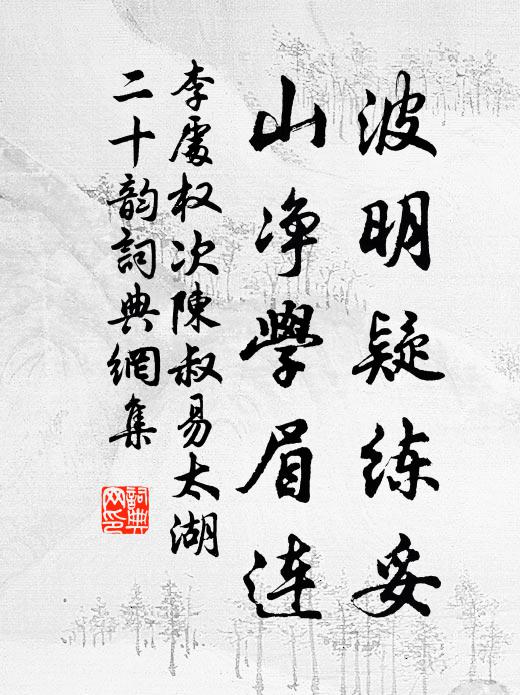 波明疑练妥
山净學眉连
李處权次陳叔易太湖
二十韵詞典網集
詞典
网印